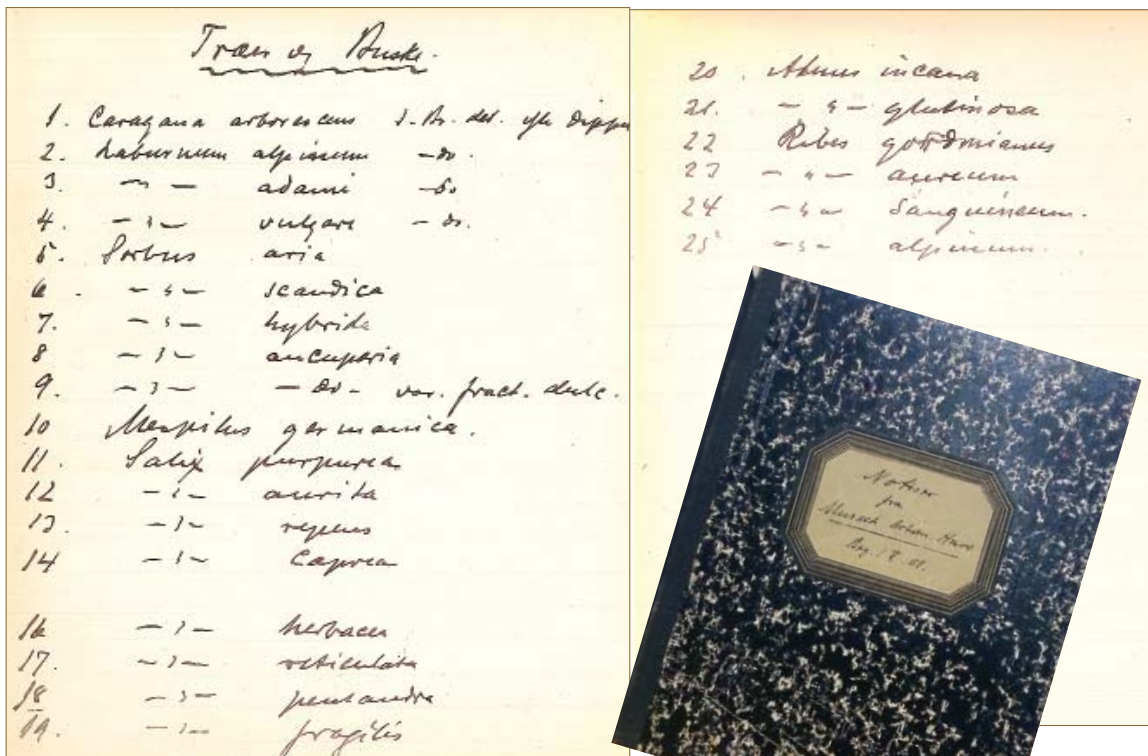 Træer og Buske.
1. Caragana arborescens
2. Laburnum alpinum -do.
3. -"- adami -do
4. -"- vulgare -do.
5. Sorbus aria
6. -"- scandica
7. -"- hybrida
8 -"- aucuparia
9. -"- -do- var. fruct. dulc.
10 Mespilus germanica.
11. Salix purpurea
12 -"- aurita
13. -"- repens
14 -"- Caprea
16 -"- herbacea
17. -"- reticulata
18 -"- pentandra
19. -"- fragilis
20. Alnus incana
21. -"- glutinosa
22 Ribes gordonianus
23 -"- aureum
24 -"- Sanguineum.
25 -"- alpinum.
Notiser
fra
Have
Aug.